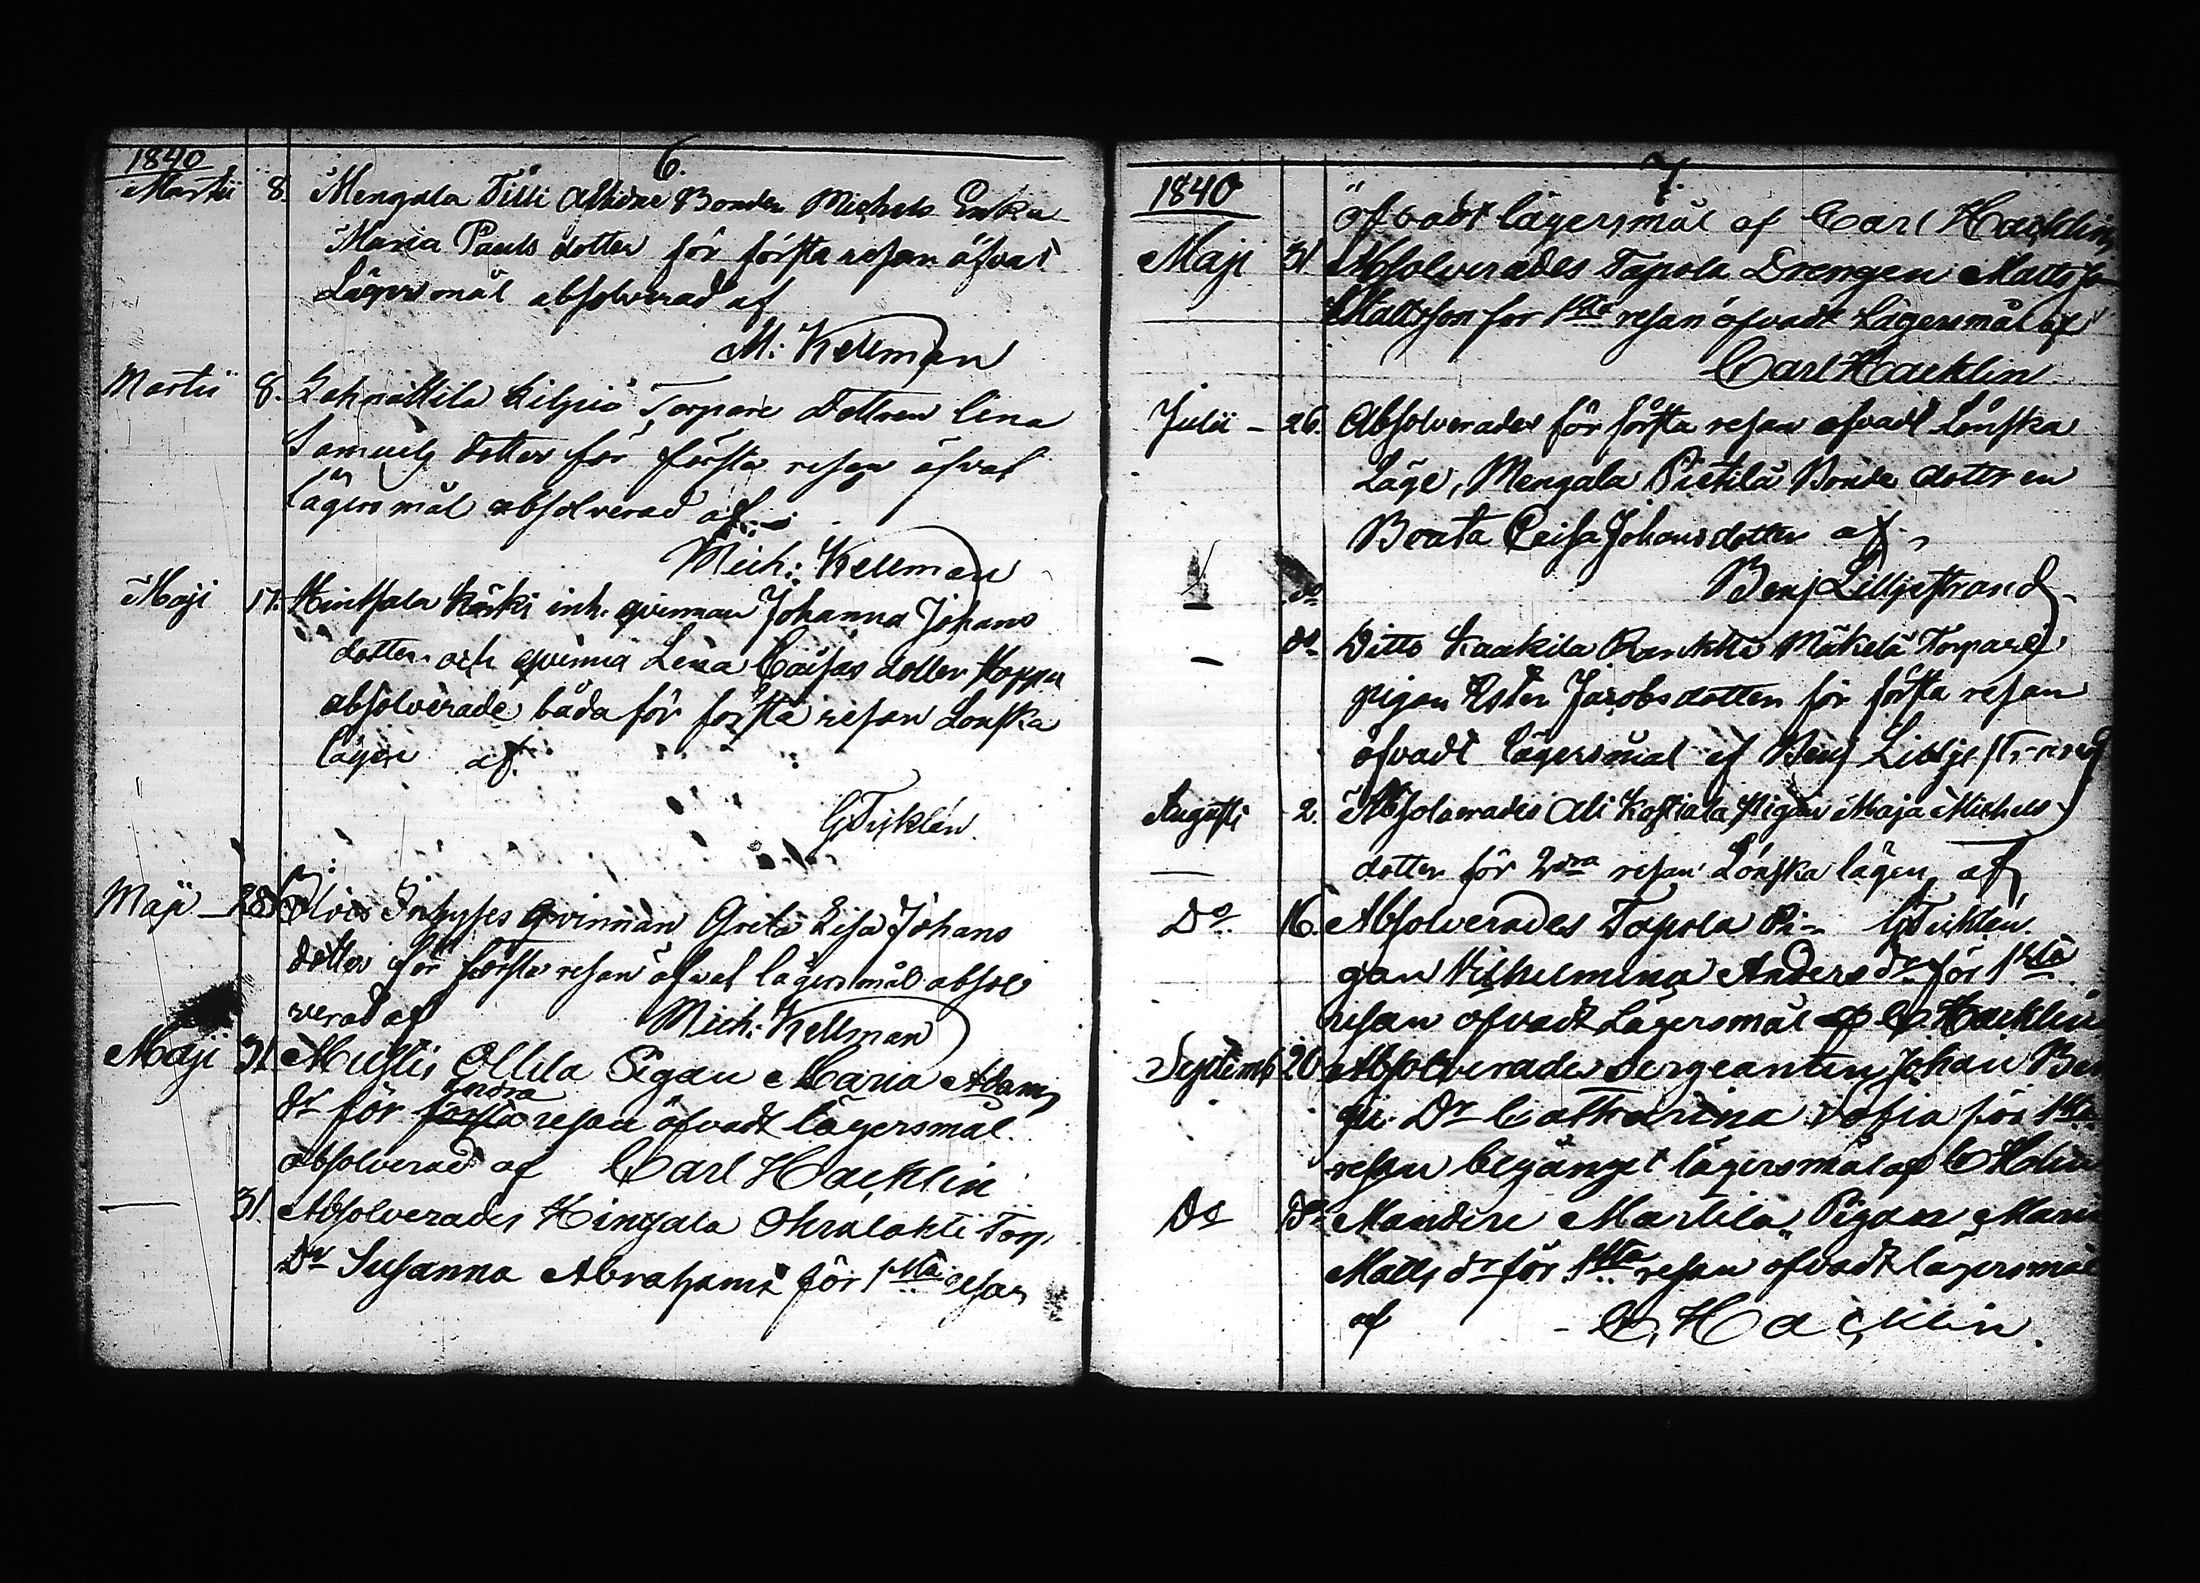 6.
1840
Martii 8. Mengala Tilli Afledne Bonden Michels Enka
Maria Pauls dotter för första resan öfvat
Lägersmål absolverad af
M: Kellman
Martii 8. Kilpiö Torpare Dottren Lena
Samuels dotter för första resan öfvat
lägersmål absolverad af
Mich: Kellman
Maji 17. Hintsala Koski inh. qvinnan Johanna Johans
dotter och qvinna Lena Caisas dotter Hoppu
absolverade båda för första resan Lönska
läger af
G Ticklén
Maji 28 Inhyses qvinnan Greta Lisa Johans
dotter för första resan öfvat lägersmål absol
verad af Mich: Kellman
Maji 31. Mustis Ollila Pigan Maria Adams
dr för första andra resan öfvadt lägersmål
absolverad af Carl Hacklin
— 31. Absolverades Hingala Ohralahti Torp.
Dr Susanna Abrahams för 1sta resan
7.
1840
öfvadt lägersmål af Carl Hacklin
Maji 31. Absolverades Tapola Drengen Matts
Mattsson för 1sta resan öfvadt Lägersmål af
Carl Hacklin
Julii – 26. Absolverades för första resan öfvadt Lönska
Läge, Mengala Pietilä Bonde dottren
Beata Caisa Johansdotter af
Benj Lilljestrand
— do Ditto Kaakila Mäkelä Torpare
pigan Ester Jacobsdotter för första resan
öfvadt lägersmål af Benj Lilljestrand
Augusti 2. Absolverades Ali Kossila Pigan Maja Michels
dotter för 2dra resan Lönska lägen af
Do 16. Absolverades Tapola Pi- G Ticklén.
gan Vilhelmina Anders dr för 1sta
resan öfvadt Lägersmål af C. Hacklin
Septemb 20 Absolverades Sergeanten Johan
Dr Catharina Sofia för 1sta
resan begånget lägersmål af C H
Do Do Mandere Martila Pigan Maria
Matts dr för 1sta resan öfvadt lägersmål
af – C. Hacklin.